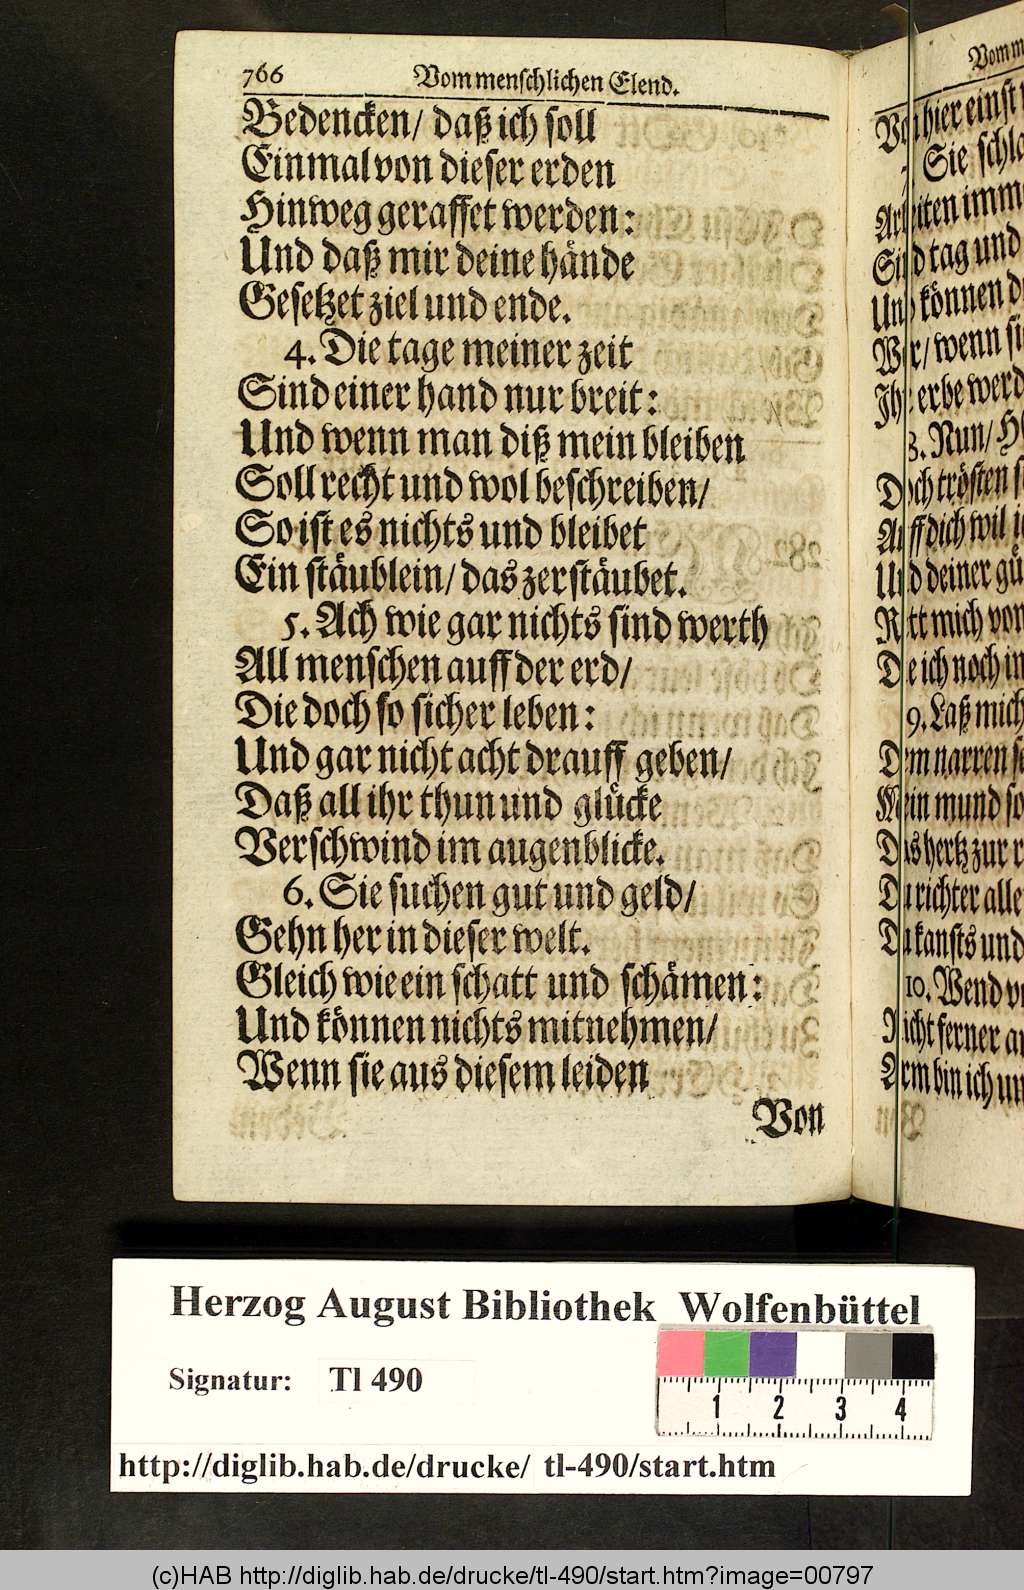 766 Vom menschlichen Elend.
Bedencken/ daß ich soll
Einmal von dieser erden
Hinweg geraffet werden:
Und daß mir deine hände
Gesetzet ziel und ende.
4. Die tage meiner zeit
Sind einer hand nur breit:
Und wenn man diß mein bleiben
Soll recht und wol beschreiben/
So ist es nichts und bleibet
Ein stäublein/ das zerstäubet.
5. Ach wie gar nichts sind werth
All menschen auff der erd/
Die doch so sicher leben:
Und gar nicht acht drauff geben/
Daß all ihr thun und glücke
Verschwind im augenblicke.
6. Sie suchen gut und geld/
Gehn her in dieser welt.
Gleich wie ein schatt und schämen:
Und können nichts mitnehmen/
Wenn sie aus diesem leiden
Von
hier einst
Sie
tag und
können
wenn
erbe werd
Nun/
trösten
dich wil
deiner gü
mich von
ich noch
9. Laß mich
narren
mund
hertz zur
richter alle
kansts und
10. Wend
ferner
bin ich
Herzog August Bibliothek Wolfenbüttel
Signatur: Tl 490
1 2 3 4
http://diglib.hab.de/drucke/ tl-490/start.htm
(c)HAB http://diglib.hab.de/drucke/tl-490/start.htm?image=00797